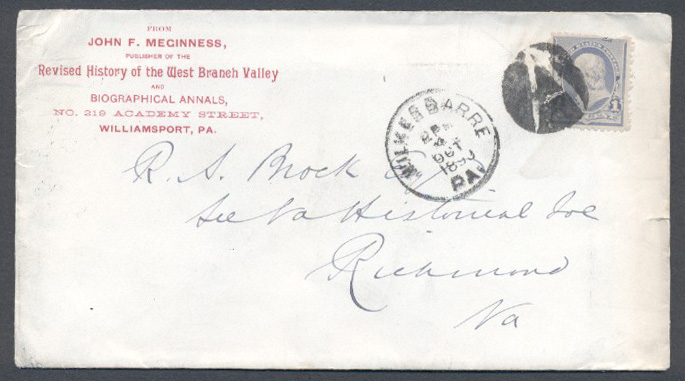 FROM
JOHN F. MEGINNESS,
PUBLISHER OF THE
Revised History of the West Branch Valley
AND
BIOGRAPHICAL ANNALS,
NO. 219 ACADEMY STREET,
WILLIAMSPORT, PA.
WILKES BARRE
2 PM
4
OCT
1890
PA.
1
R. A. Brock
Sec Va Historical Soc
Richmond
Va